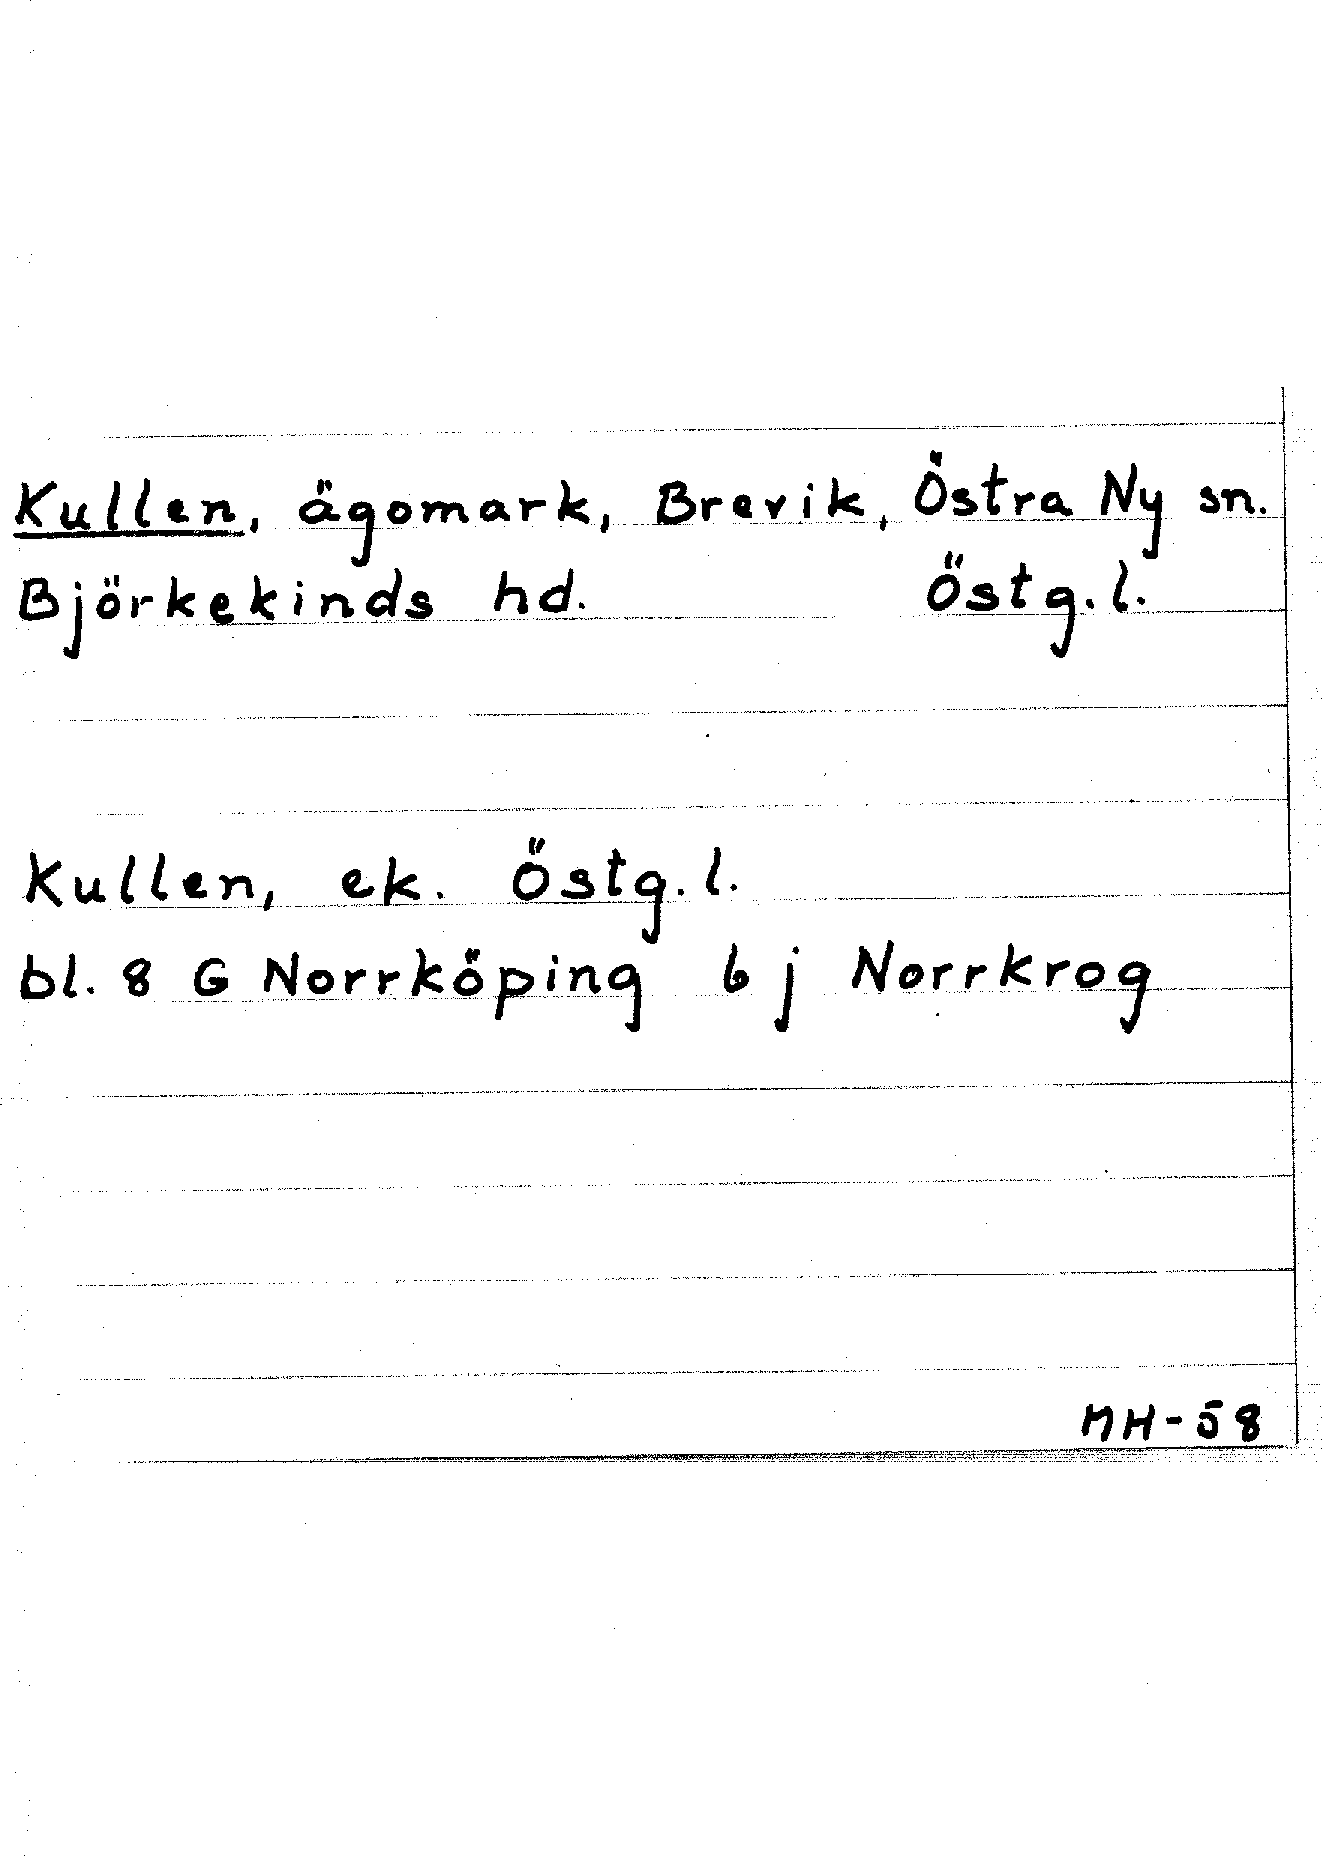 Kullen, ägomark, Brevik, Östra Ny sn.
Björkekinds hd. Östg. l.
Kullen, ek. Östg. l.
bl. 8 G Norrköping 6 j Norrkrog
MH-58